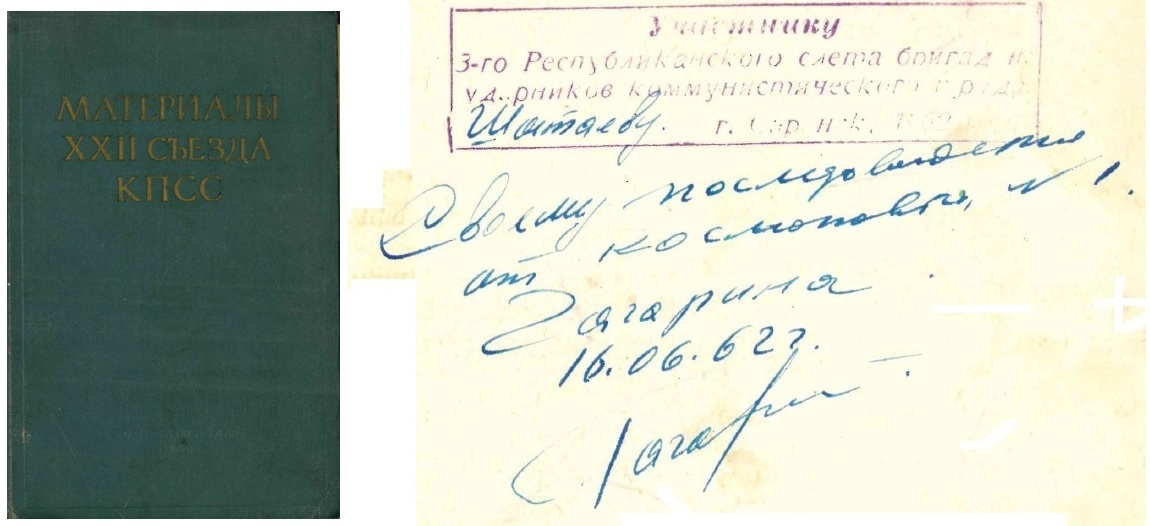 МАТЕРИАЛЫ
XXII СЪЕЗДА
КПСС
Участнику
3-го Республиканского слета бригад и
ударников коммунистического труда
Шатаеву. г. Саранск, 1962
Своему последователю
от космонавта N 1.
Гагарина
16.06.62 г.
Гагарин